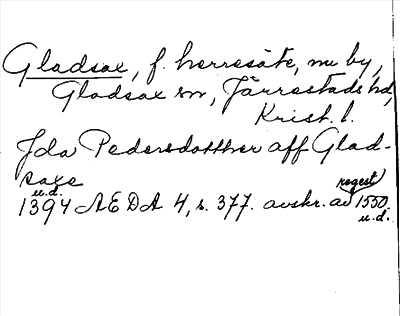 Gladsax, f. herresäte, nu by,
Gladsax sn, Järrestads hd,
Krist. l.
Jda Pedersdotther aff Glad-
saxe
u.d. regest
1394 AEDA 4, s. 377. avskr. av 1550.
u.d.